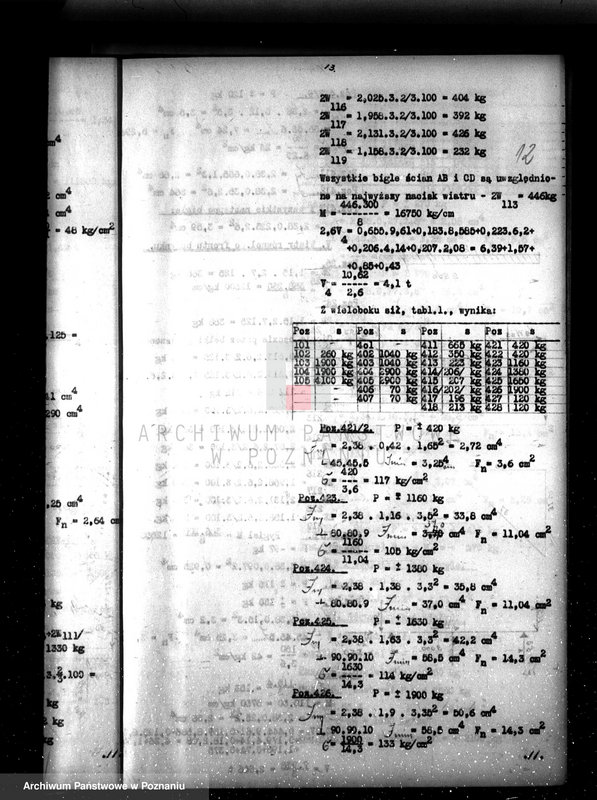 13.
12
2W116 = 2,025.3.2/3.100 = 404 kg
2W117 = 1,958.3.2/3.100 = 392 kg
2W118 = 2,131.3.2/3.100 = 426 kg
2W119 = 1,158.3.2/3.100 = 232 kg
Wszystkie bigle ścian AB i CD są uwzględnio-
ne na najwyższy nacisk wiatru - 2W113 = 446kg
M = 446.300 / 8 = 16750 kg/cm
2,6V4 = 0,655.9,61+0,183.8,585+0,223.6,2+
+0,206.4,14+0,207.2,08 = 6,39+1,57+
+0,85+0,43
V4 = 10,62 / 2,6 = 4,1 t
Z wieloboku sił, tabl.1., wynika:
Poz s Poz s Poz s Poz s
101 — 401 — 411 665 kg 421 420 kg
102 260 kg 402 1040 kg 412 350 kg 422 420 kg
103 1900 kg 403 1040 kg 413 223 kg 423 1160 kg
104 1900 kg 404 2900 kg 414/206/ kg 424 1380 kg
105 4100 kg 405 2900 kg 415 207 kg 425 1650 kg
406 70 kg 416/202/ kg 426 1900 kg
407 70 kg 417 196 kg 427 120 kg
418 213 kg 428 120 kg
Poz.421/2. P = ± 420 kg
= 2,38 . 0,42 . 1,65² = 2,72 cm⁴
45.45.5 Jmin = 3,25 Fn = 3,6 cm²
σ = 420 / 3,6 = 117 kg/cm²
Poz.423. P = ± 1160 kg
= 2,38 . 1,16 . 3,5² = 33,8 cm⁴
80.80.9 Jmin = cm⁴ Fn = 11,04 cm²
σ = 1160 / 11,04 = 105 kg/cm²
Poz.424. P = ± 1380 kg
= 2,38 . 1,38 . 3,3² = 35,8 cm⁴
80.80.9 Jmin = 37,0 cm⁴ Fn = 11,04 cm²
Poz.425. P = ± 1630 kg
= 2,38 . 1,63 . 3,3² = 42,2 cm⁴
90.90.10 Jmin = 58,5 cm⁴ Fn = 14,3 cm²
σ = 1630 / 14,3 = 114 kg/cm²
Poz.426. P = ± 1900 kg
= 2,38 . 1,9 . 3,35² = 50,6 cm⁴
90.90.10 Jmin = 58,5 cm⁴ Fn = 14,3 cm²
σ = 1900 / 14,3 = 133 kg/cm²
.11.
cm⁴
2 cm⁴
cm⁴
= 48 kg/cm²
.125 =
41 cm⁴
290 cm⁴
.25 cm⁴
Fn = 2,64 cm
kg
+2W111/
1330 kg
.100 =
kg
2 kg
kg
.11.
ARCHIWUM PAŃSTWOWE
W POZNANIU
Archiwum Państwowe w Poznaniu